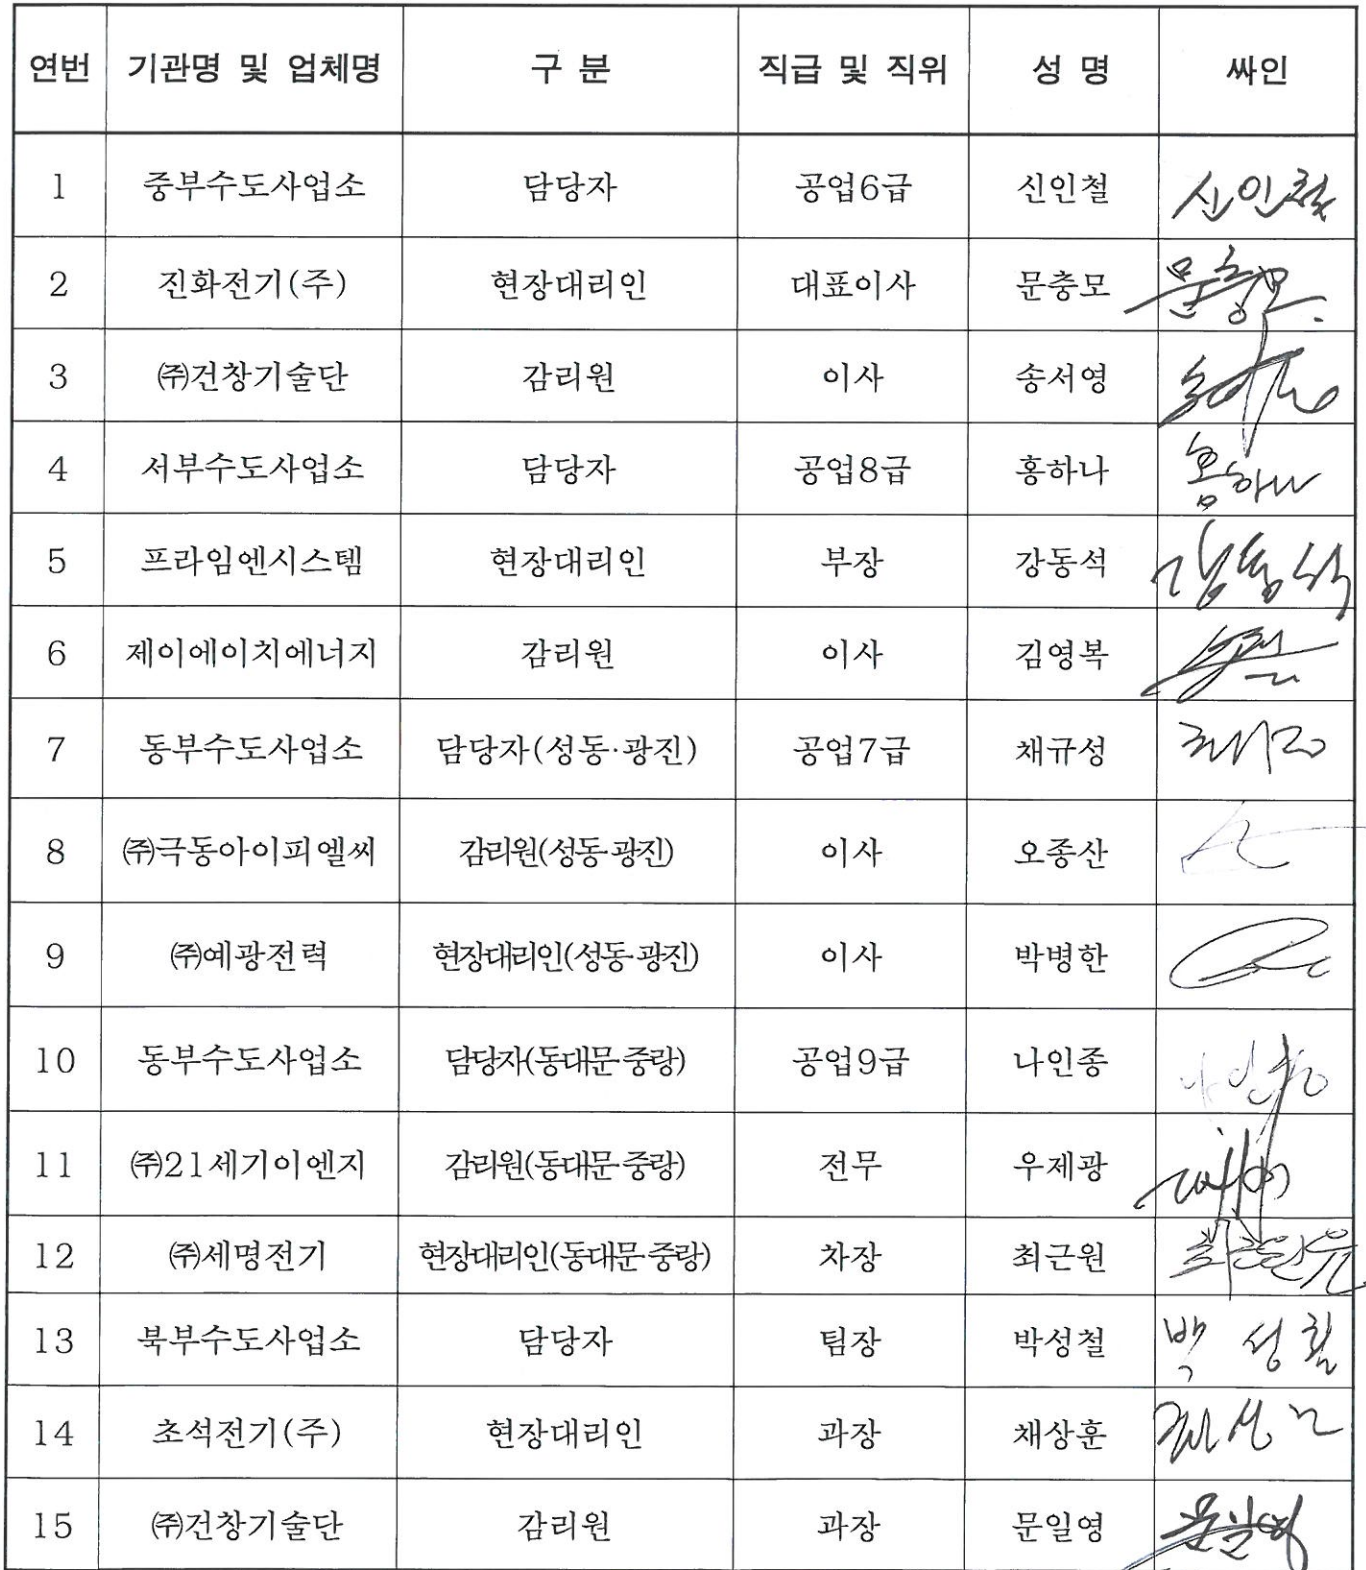 연번 기관명 및 업체명 구 분 직급 및 직위 성 명 싸인
1 중부수도사업소 담당자 공업6급 신인철 신인철
2 진화전기(주) 현장대리인 대표이사 문충모 문충모
3 ㈜건창기술단 감리원 이사 송서영
4 서부수도사업소 담당자 공업8급 홍하나 홍하나
5 프라임엔시스템 현장대리인 부장 강동석 강동석
6 제이에이치에너지 감리원 이사 김영복
7 동부수도사업소 담당자(성동·광진) 공업7급 채규성
8 ㈜극동아이피엘씨 감리원(성동·광진) 이사 오종산
9 ㈜예광전력 현장대리인(성동·광진) 이사 박병한
10 동부수도사업소 담당자(동대문·중랑) 공업9급 나인종 나인종
11 ㈜21세기이엔지 감리원(동대문·중랑) 전무 우제광
12 ㈜세명전기 현장대리인(동대문·중랑) 차장 최근원
13 북부수도사업소 담당자 팀장 박성철 박성철
14 초석전기(주) 현장대리인 과장 채상훈
15 ㈜건창기술단 감리원 과장 문일영 문일영